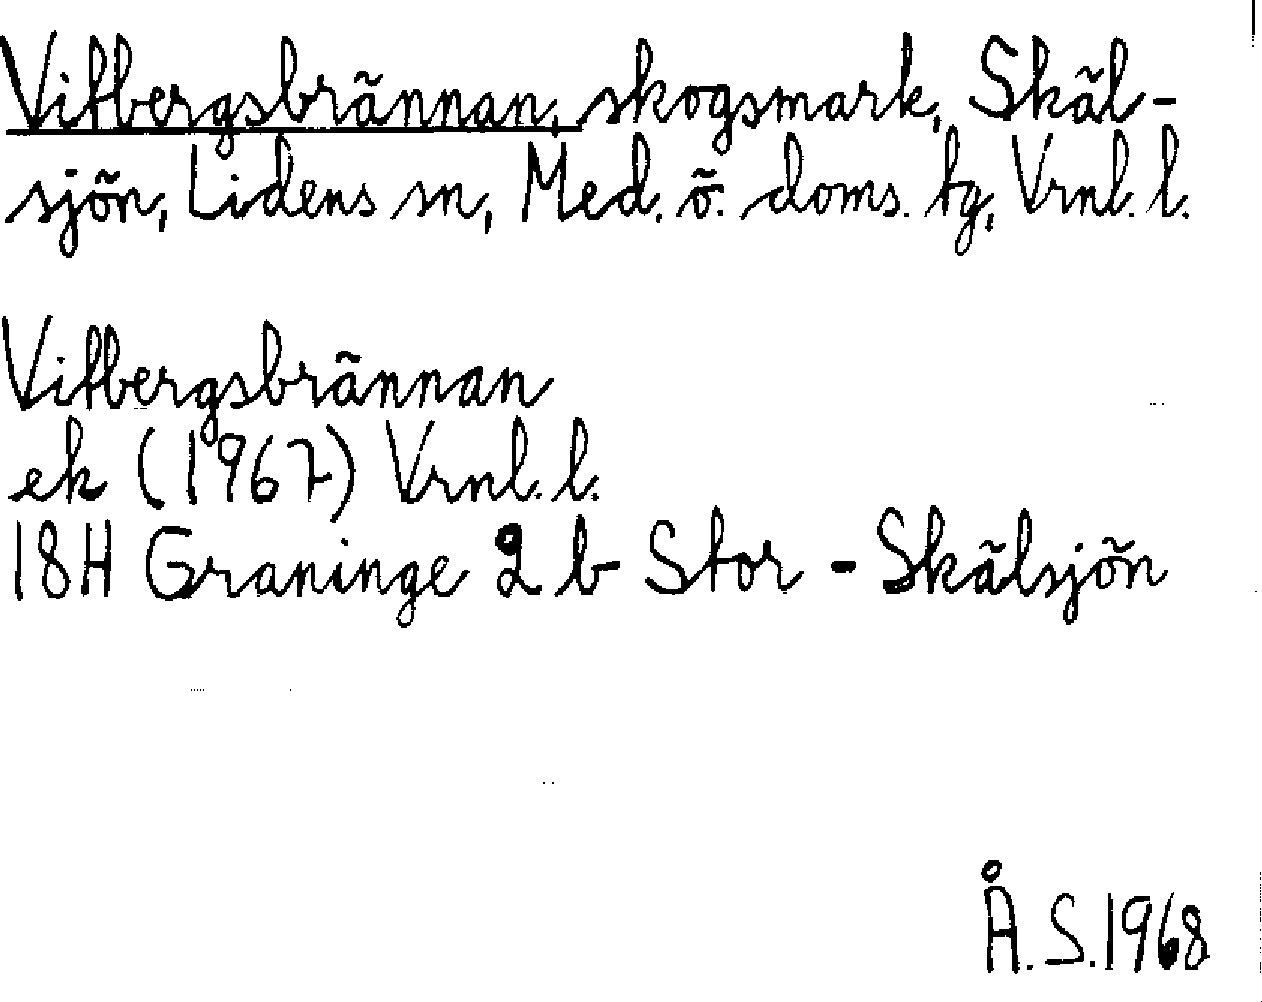 Vitbergsbrännan, skogsmark, Skäl-
sjön, Lidens sn, Med. ö. doms. tg, Vrnl. l.
Vitbergsbrännan
ek (1967) Vrnl. l.
18H Graninge 2 b Stor-Skälsjön
Å.S. 1968